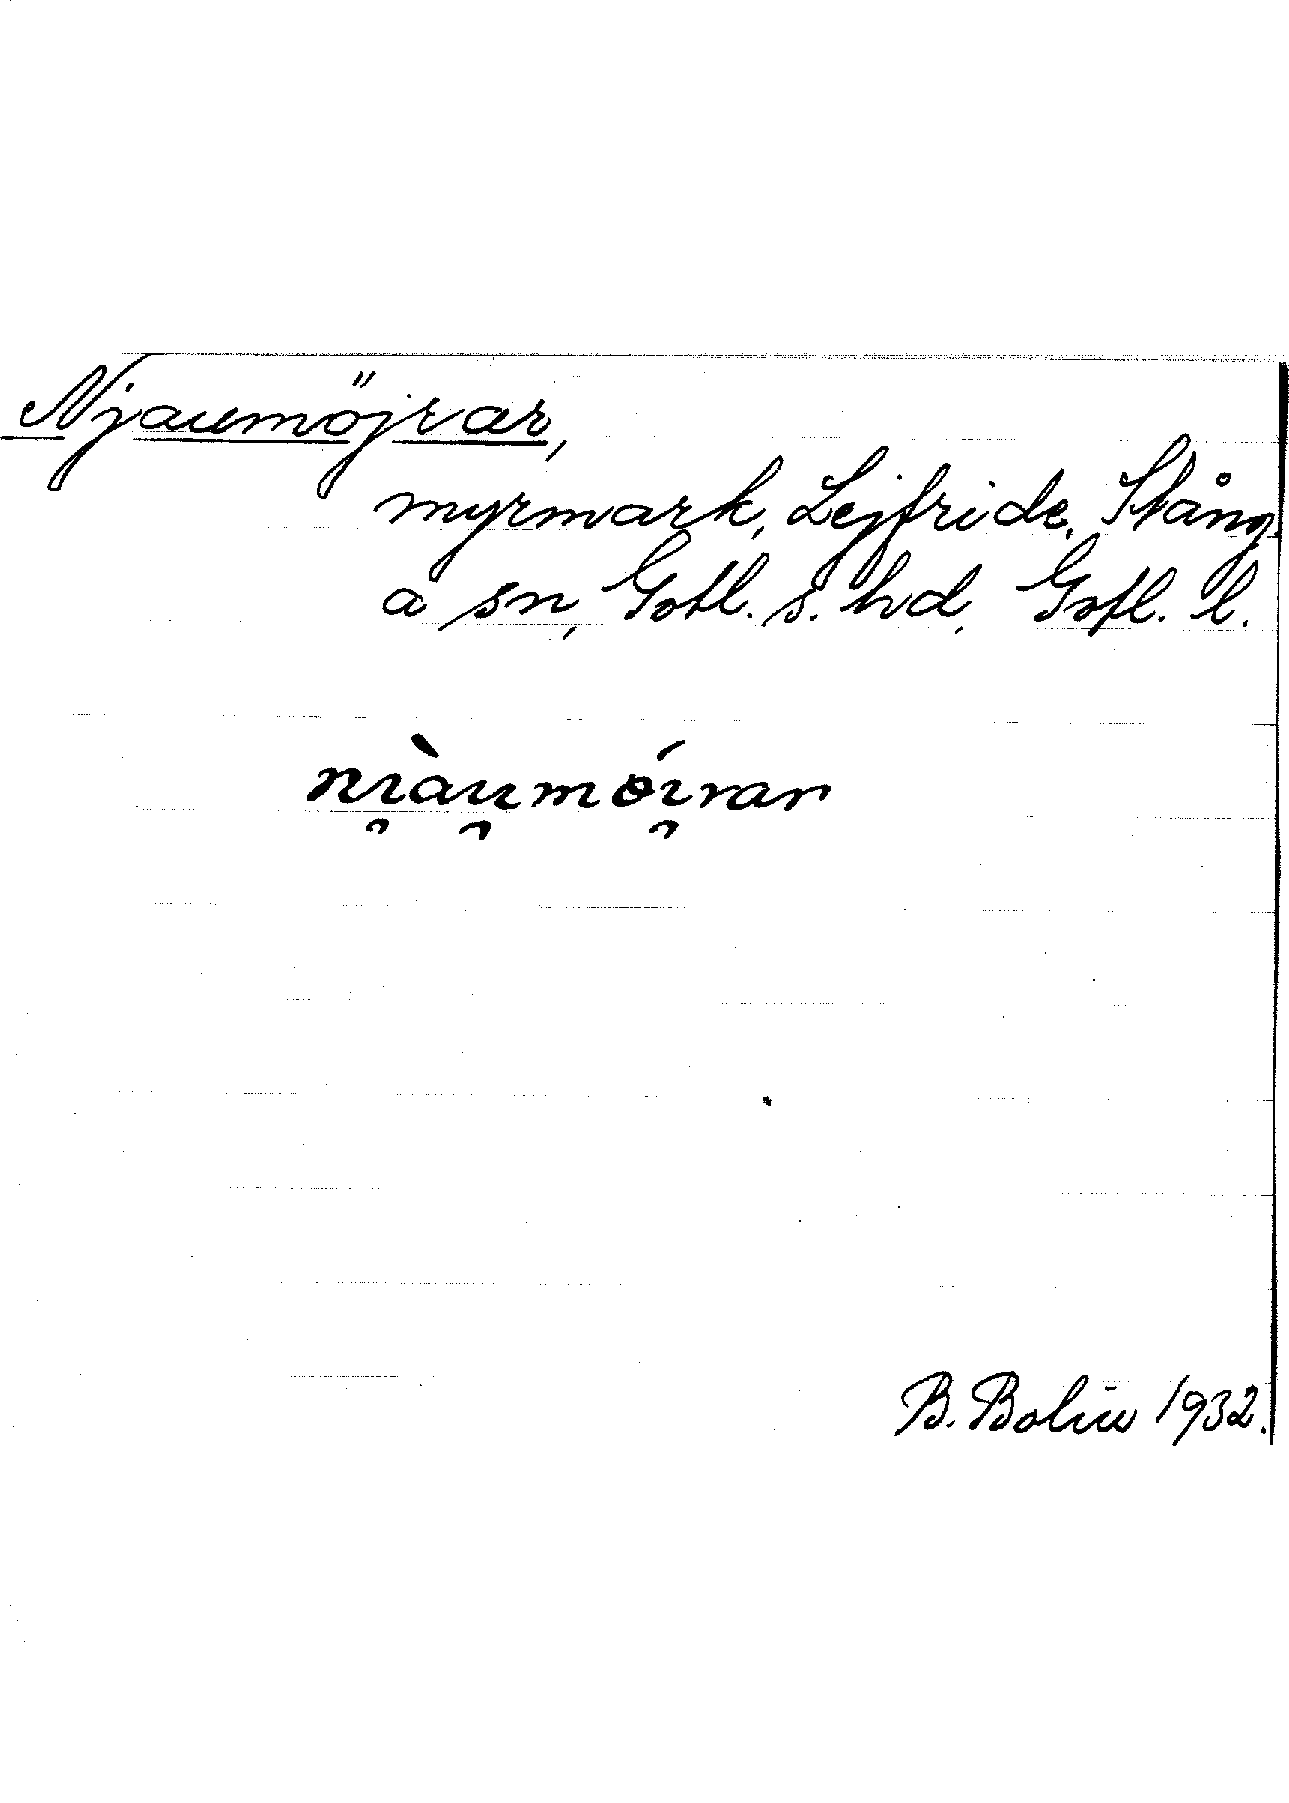 Njaumöjrar,
myrmark, Lejfride, Stång
a sn, Gotl. s. hd, Gotl. l.
nı̯àu̯mȯ́ı̯rar
B. Bolin 1932.